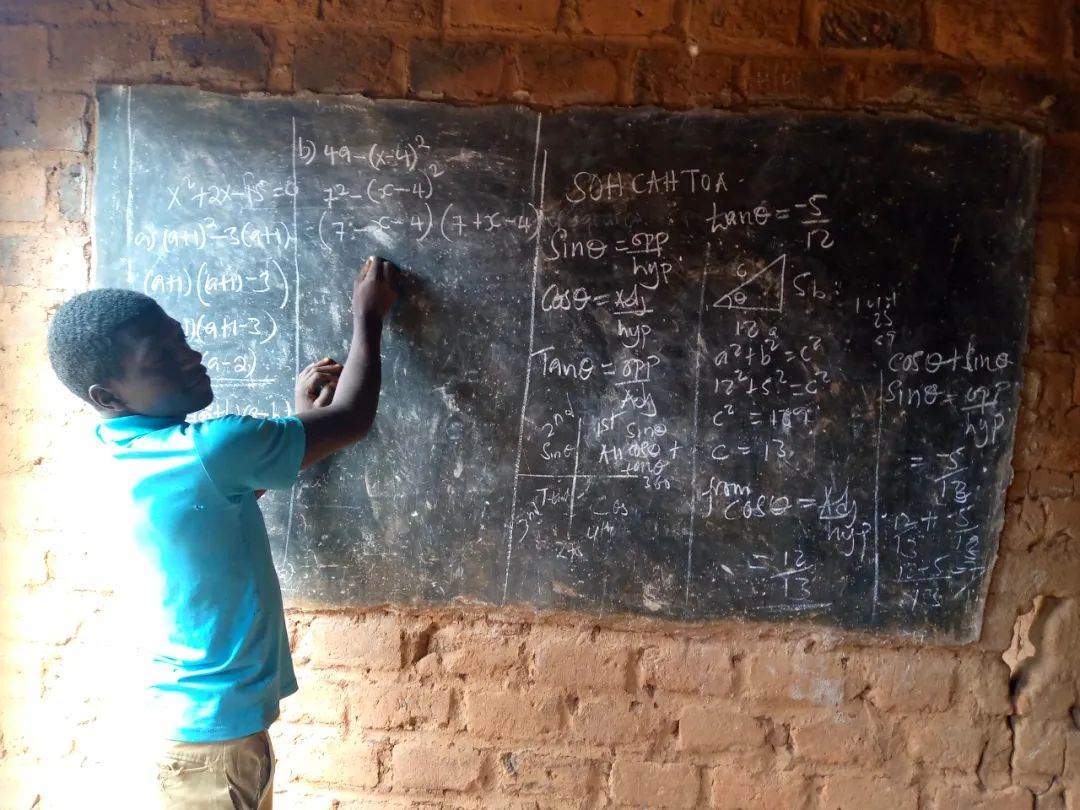 x²+2x-15=0
a) (a+1)²-3(a+1)
(a+1)(a+1-3)
)(a+1-3)
a-2)
b) 49-(x-4)²
7²-(x-4)²
=(7-x-4)(7+x-4)
SOH CAH TOA
Sinθ = opp/hyp
Cosθ = Adj/hyp
Tanθ = opp/Adj
2nd 1st
Sinθ Sinθ
All cosθ +
tanθ
360
3rd Tan Cos
4th
tanθ = -5/12
c 5 b
θ
12 a
a²+b²=c²
12²+5²=c²
c² = 169
c = 13
from
cosθ = Adj/hyp
= 12/13
cosθ+sinθ
Sinθ = opp/hyp
= -5/13
12/13 + -5/13
12-5/13